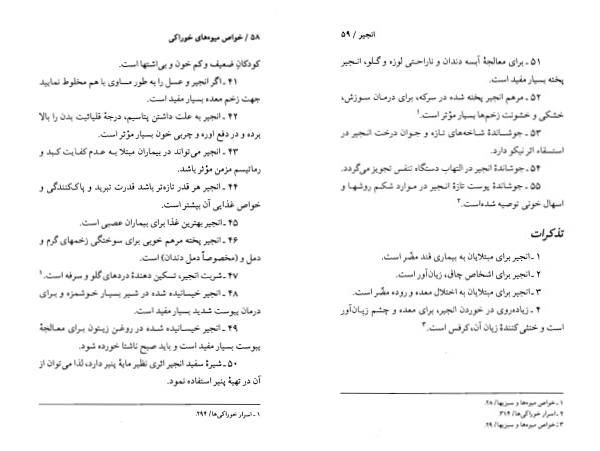 ۵۸ / خواص میوه‌های خوراکی
کودکان ضعیف و کم خون و بی‌اشتها است.
۴۱ ـ اگر انجیر و عسل را به طور مساوی با هم مخلوط نمایید
جهت زخم معده بسیار مفید است.
۴۲ ـ انجیر به علت داشتن پتاسیم، درجهٔ قلیائیت بدن را بالا
برده و در دفع اوره و چربی خون بسیار مؤثر است.
۴۳ ـ انجیر می‌تواند در بیماران مبتلا به عدم کفایت کبد و
رماتیسم مزمن مؤثر باشد.
۴۴ ـ انجیر هر قدر تازه‌تر باشد قدرت تبرید و پاک‌کنندگی و
خواص غذایی آن بیشتر است.
۴۵ ـ انجیر بهترین غذا برای بیماران عصبی است.
۴۶ ـ انجیر پخته مرهم خوبی برای سوختگی زخمهای گرم و
دمل و (مخصوصاً دمل دندان) است.
۴۷ ـ شربت انجیر، تسکین دهندهٔ دردهای گلو و سرفه است.۱
۴۸ ـ انجیر خیسانیده شده در شیر بسیار خوشمزه و برای
درمان یبوست شدید بسیار مفید است.
۴۹ ـ انجیر خیسانیده شده در روغن زیتون برای معالجهٔ
یبوست بسیار مفید است و باید صبح ناشتا خورده شود.
۵۰ ـ شیرهٔ سفید انجیر اثری نظیر مایهٔ پنیر دارد، لذا می‌توان از
آن در تهیهٔ پنیر استفاده نمود.
۱ ـ اسرار خوراکی‌ها/ ۲۹۴.
انجیر / ۵۹
۵۱ ـ برای معالجهٔ آبسه دندان و ناراحتی لوزه و گلو، انجیر
پخته بسیار مفید است.
۵۲ ـ مرهم انجیر پخته شده در سرکه، برای درمان سوزش،
خشکی و خشونت زخم‌ها بسیار مؤثر است.۱
۵۳ ـ جوشاندهٔ شاخه‌های تازه و جوان درخت انجیر در
استسقاء اثر نیکو دارد.
۵۴ ـ جوشاندهٔ انجیر در التهاب دستگاه تنفس تجویز می‌گردد.
۵۵ ـ جوشاندهٔ پوست تازهٔ انجیر در موارد شکم روشها و
اسهال خونی توصیه شده‌است.۲
تذکرات
۱ ـ انجیر برای مبتلایان به بیماری قند مضّر است.
۲ ـ انجیر برای اشخاص چاق، زیان‌آور است.
۳ ـ انجیر برای مبتلایان به اختلال معده و روده مضّر است.
۴ ـ زیاده‌روی در خوردن انجیر، برای معده و چشم زیان‌آور
است و خنثی‌کنندهٔ زیان آن، کرفس است.۳
۱ ـ خواص میوه‌ها و سبزیها/ ۲۸.
۲ ـ اسرار خوراکی‌ها/ ۳۱۴.
۳ ـ خواص میوه‌ها و سبزیها/ ۲۹.